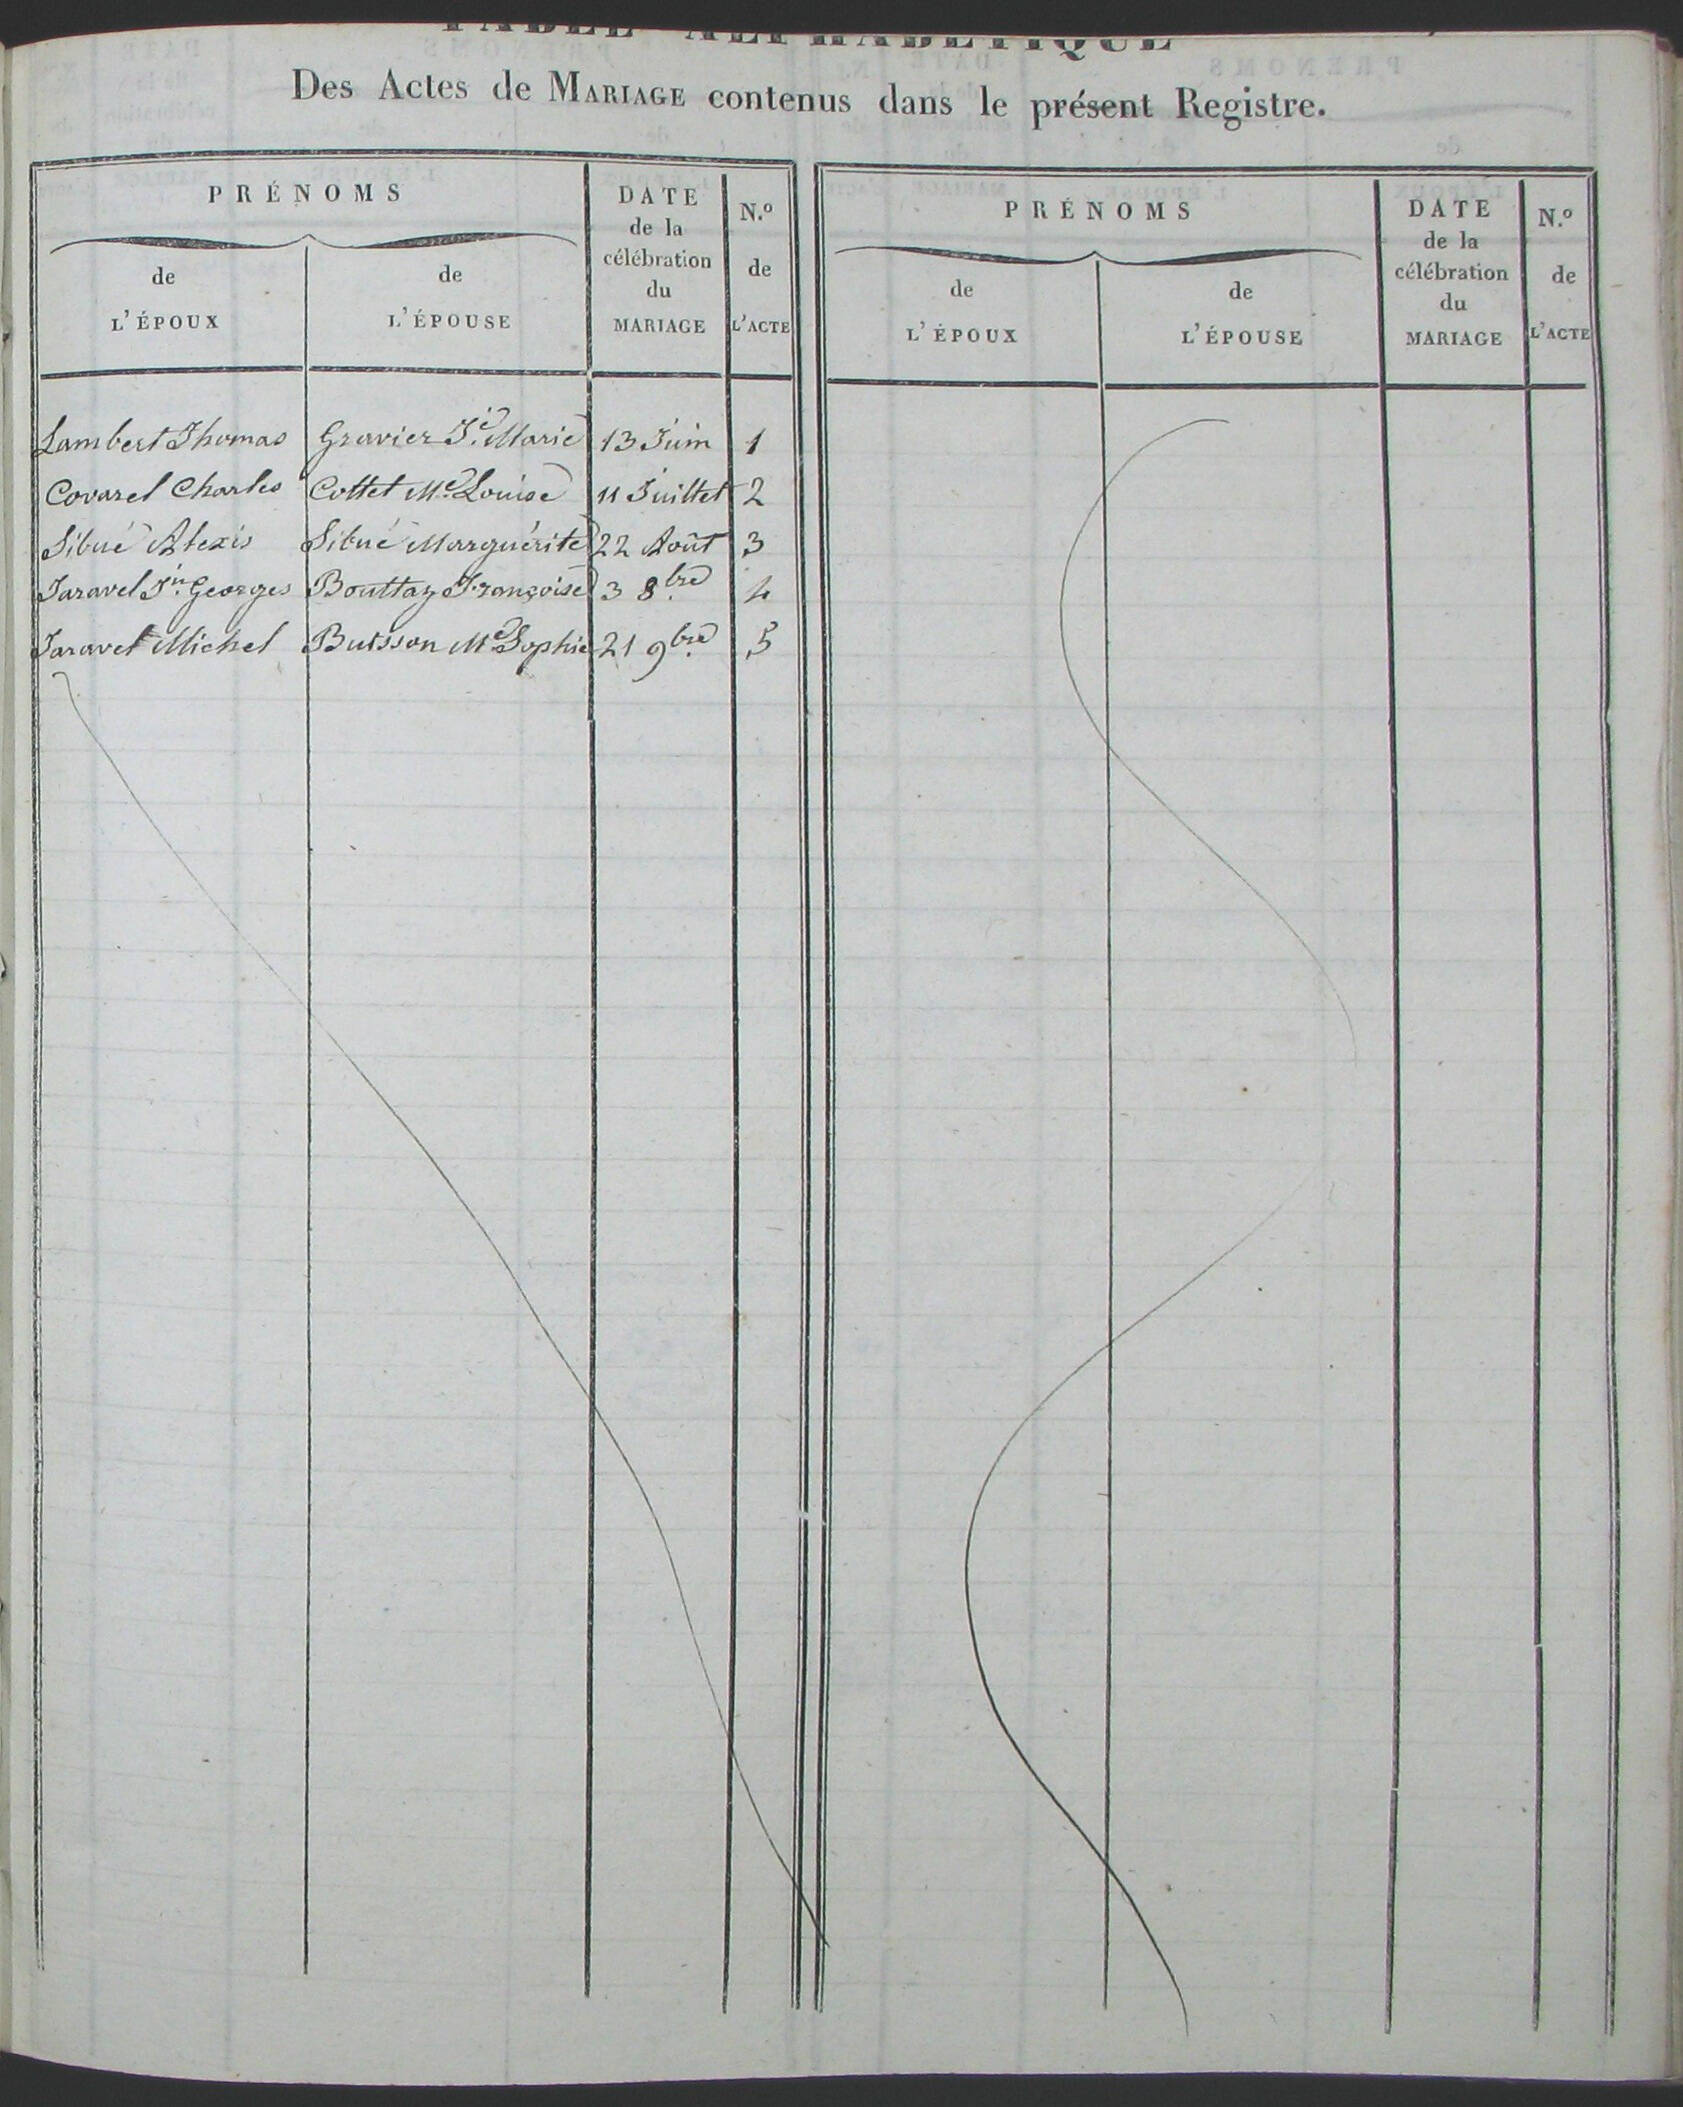 TABLE ALPHABÉTIQUE
Des Actes de MARIAGE contenus dans le présent Registre.
PRÉNOMS
de L'ÉPOUX
de L'ÉPOUSE
DATE de la célébration du MARIAGE
N.º de L'ACTE
PRÉNOMS
de L'ÉPOUX
de L'ÉPOUSE
DATE de la célébration du MARIAGE
N.º de L'ACTE
Lambert Thomas Gravier J.é Marie 13 Juin 1
Covarel Charles Cottet M.e Louise 11 Juillet 2
Sibué Alexis Sibué Marguérite 22 Août 3
Jaravel J.n Georges Bouttaz Françoise 3 8.bre 4
Jaravel Michel Buisson M.e Sophie 21 9.bre 5